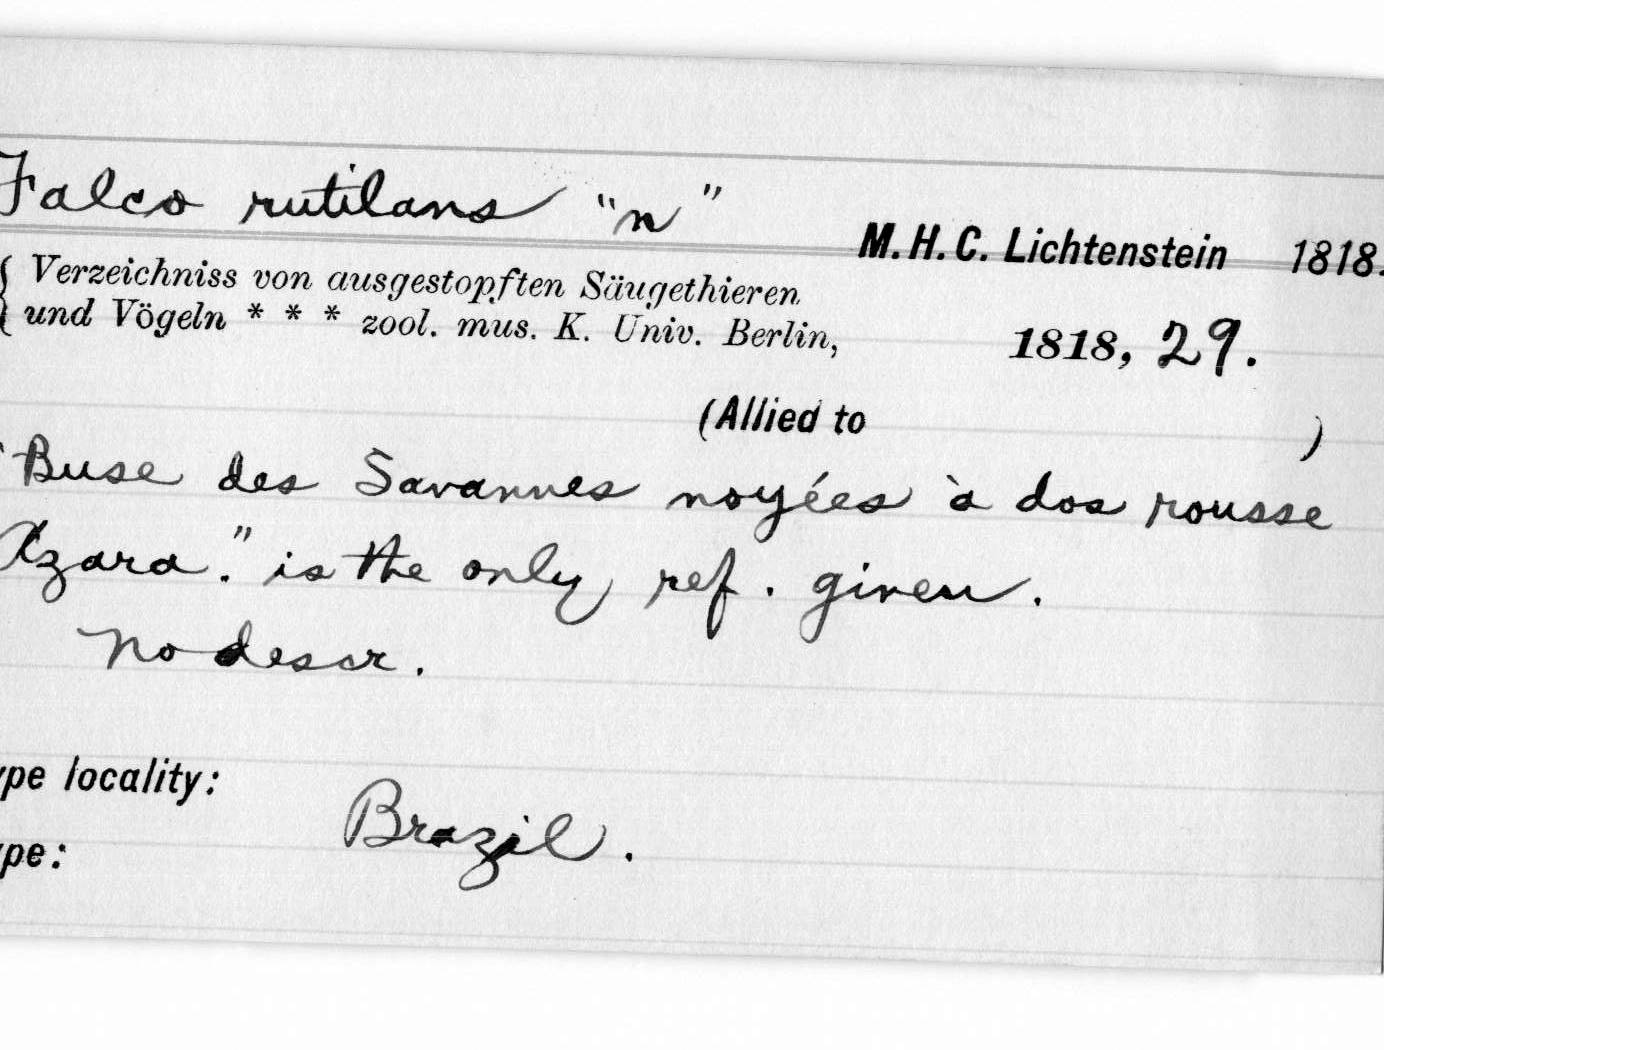 Falco rutilans "n"
M. H. C. Lichtenstein 1818.
Verzeichniss von ausgestopften Säugethieren
und Vögeln * * * zool. mus. K. Univ. Berlin, 1818, 29.
(Allied to )
"Buse des Savannes noyées à dos rousse
Azara." is the only ref. given.
No descr.
ype locality: Brazil.
ype: